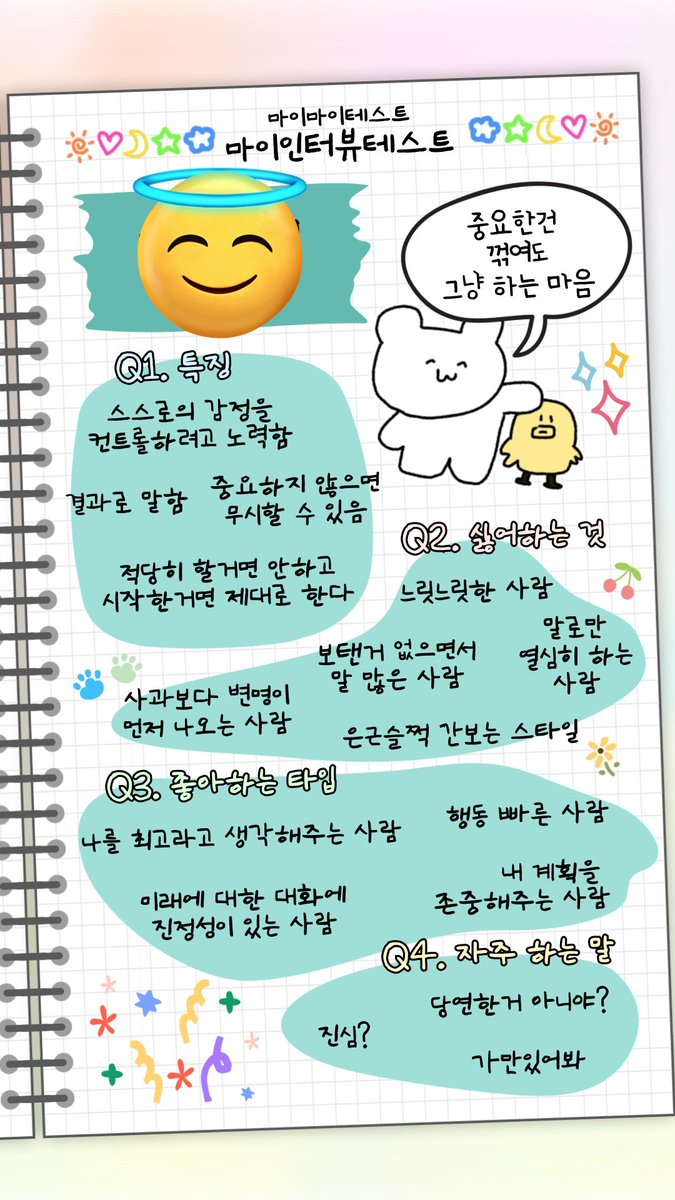 마이마이테스트
마이인터뷰테스트
중요한건
꺾여도
그냥 하는 마음
Q1. 특징
스스로의 감정을
컨트롤하려고 노력함
결과로 말함
중요하지 않으면
무시할 수 있음
적당히 할거면 안하고
시작한거면 제대로 한다
Q2. 싫어하는 것
느릿느릿한 사람
말로만
열심히 하는
사람
보탠거 없으면서
말 많은 사람
사과보다 변명이
먼저 나오는 사람
은근슬쩍 간보는 스타일
Q3. 좋아하는 타입
나를 최고라고 생각해주는 사람
행동 빠른 사람
미래에 대한 대화에
진정성이 있는 사람
내 계획을
존중해주는 사람
Q4. 자주 하는 말
당연한거 아니야?
진심?
가만있어봐